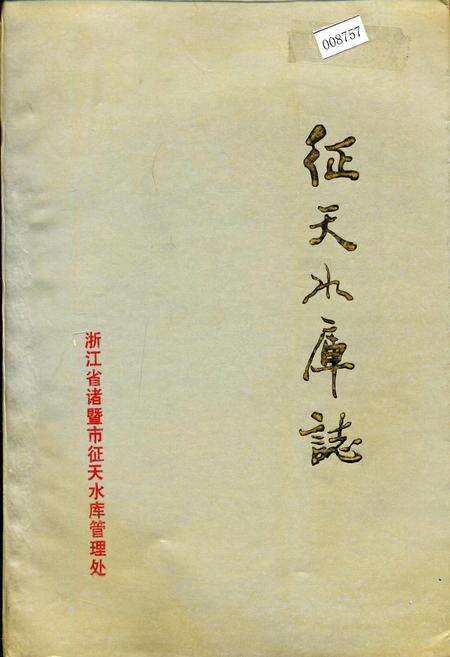 008757
征天水庫誌
浙江省诸暨市征天水库管理处